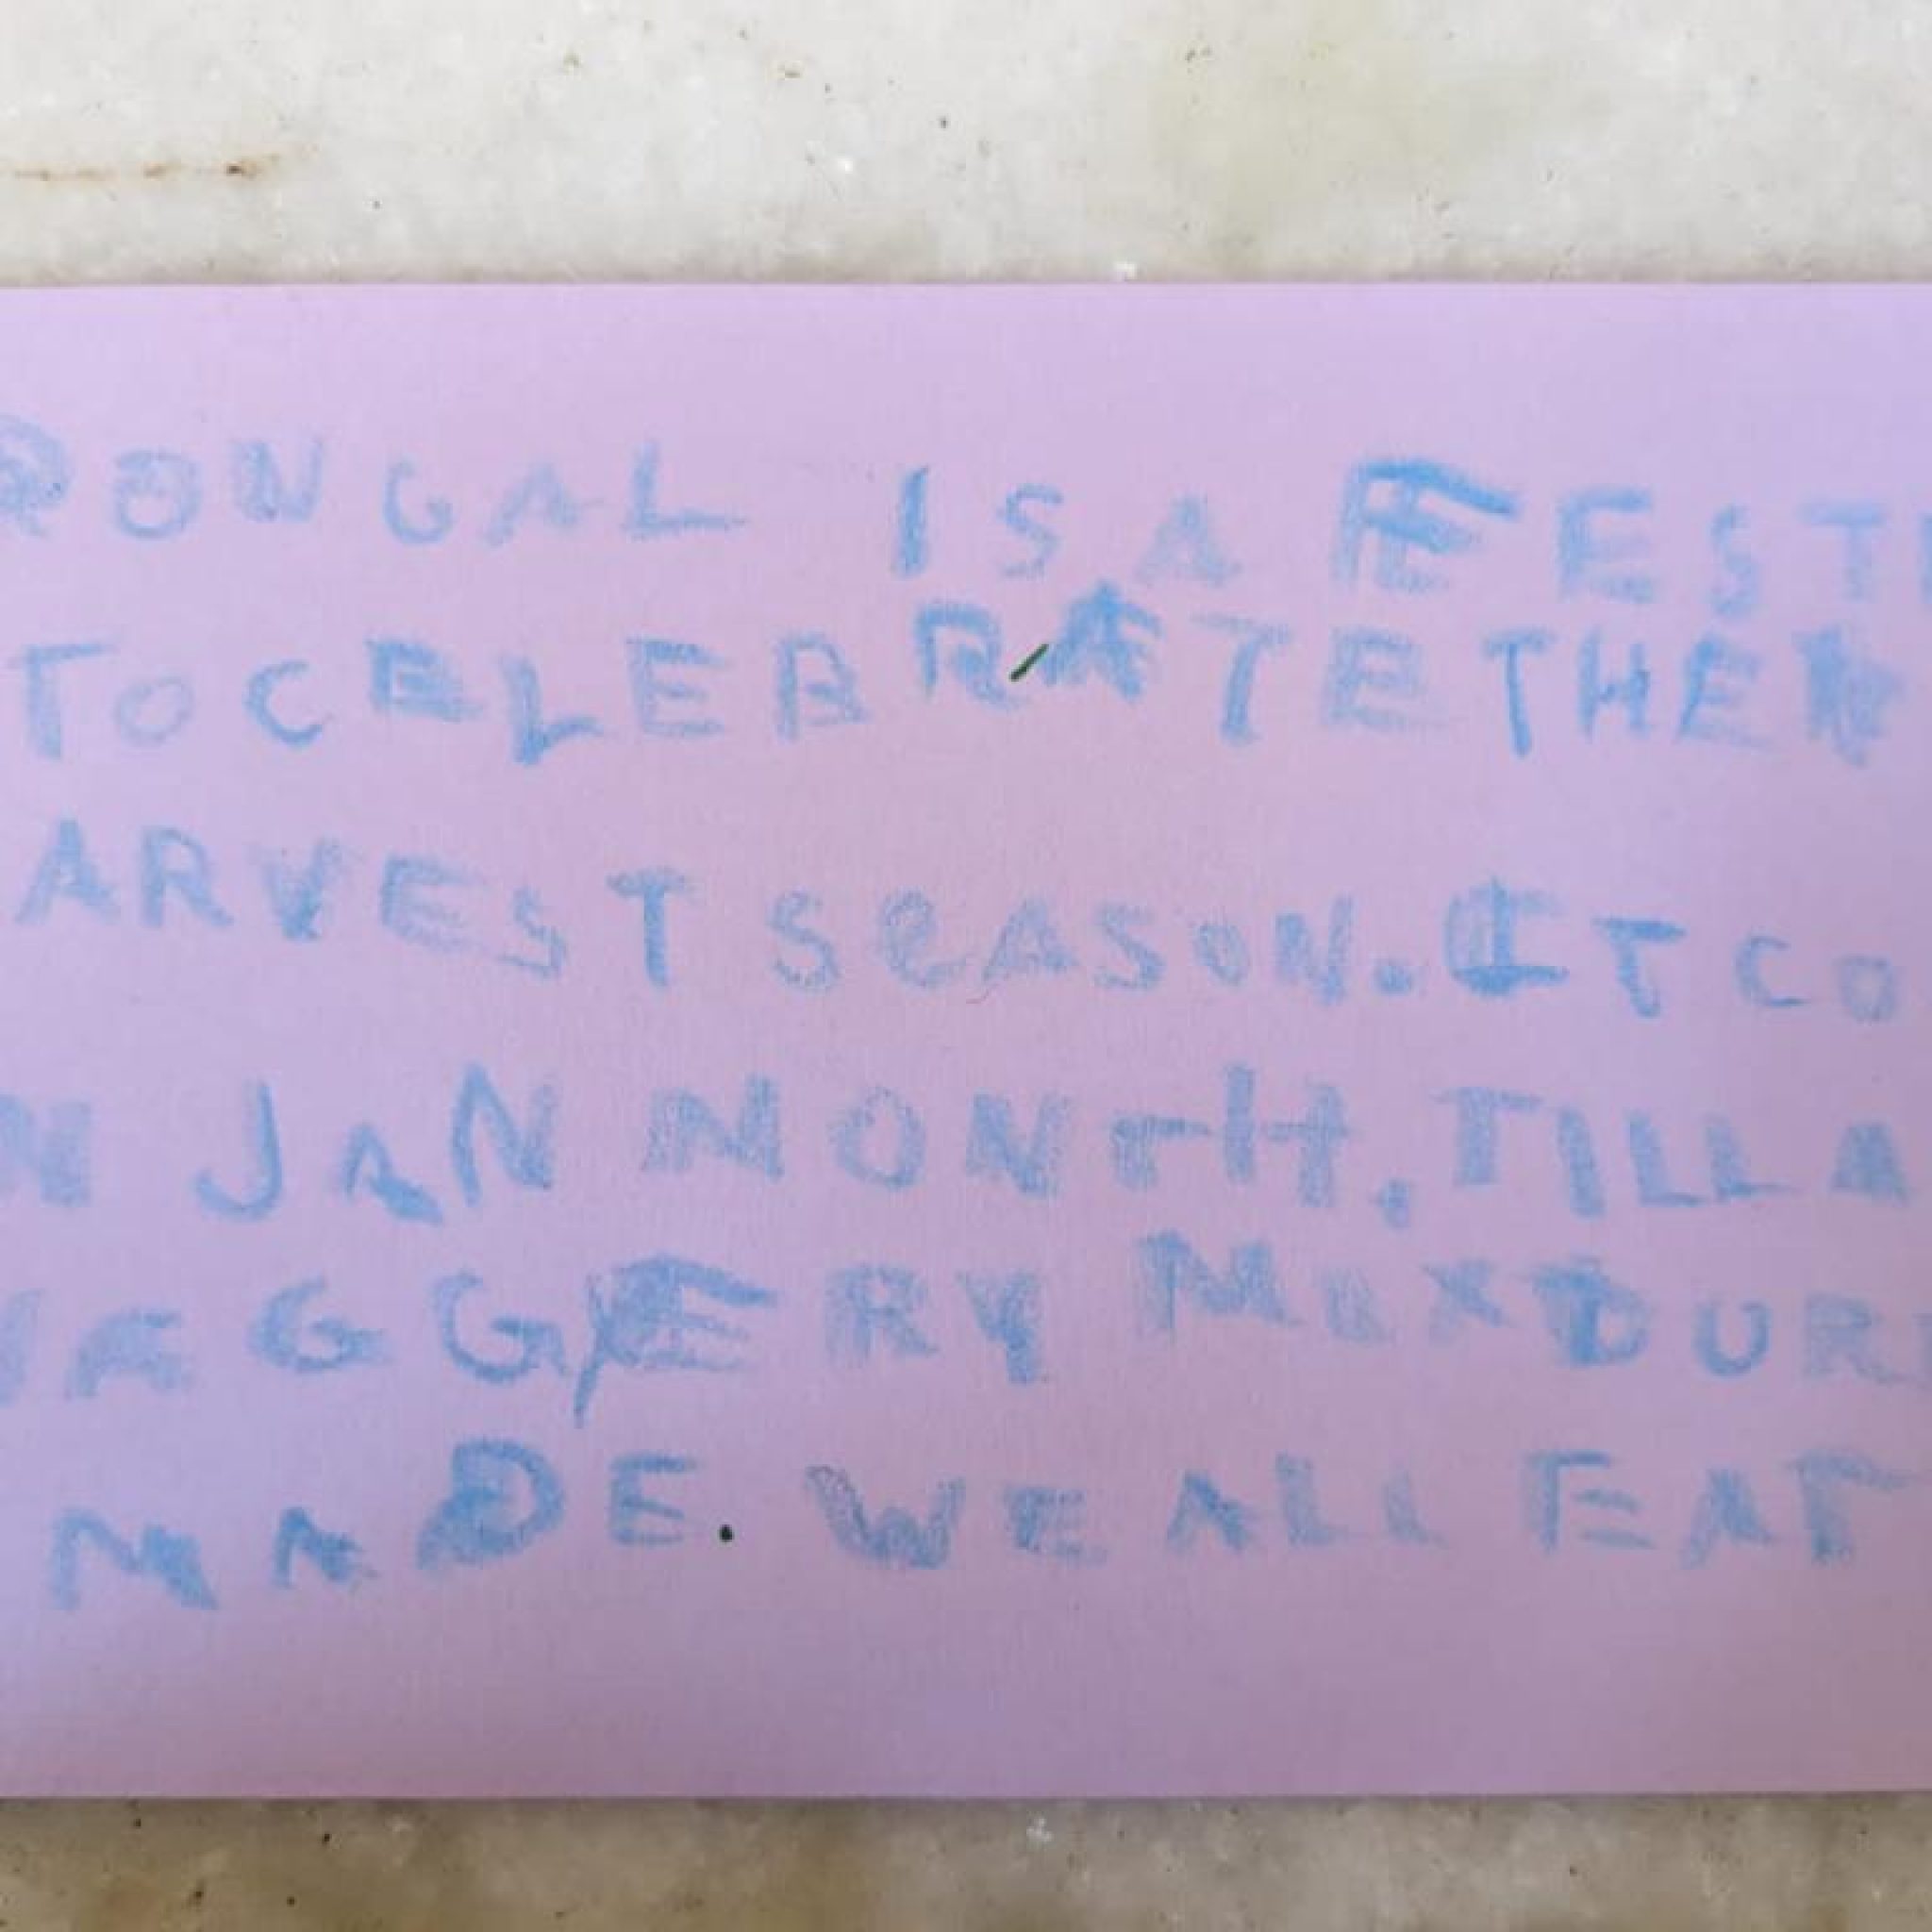 PONGAL IS A FEST
TO CELEBRATE THE H
ARVEST SEASON. IT CO
N JAN MONTH. TILL A
JAGGERY MIXDUR
MADE. WE ALL EAT